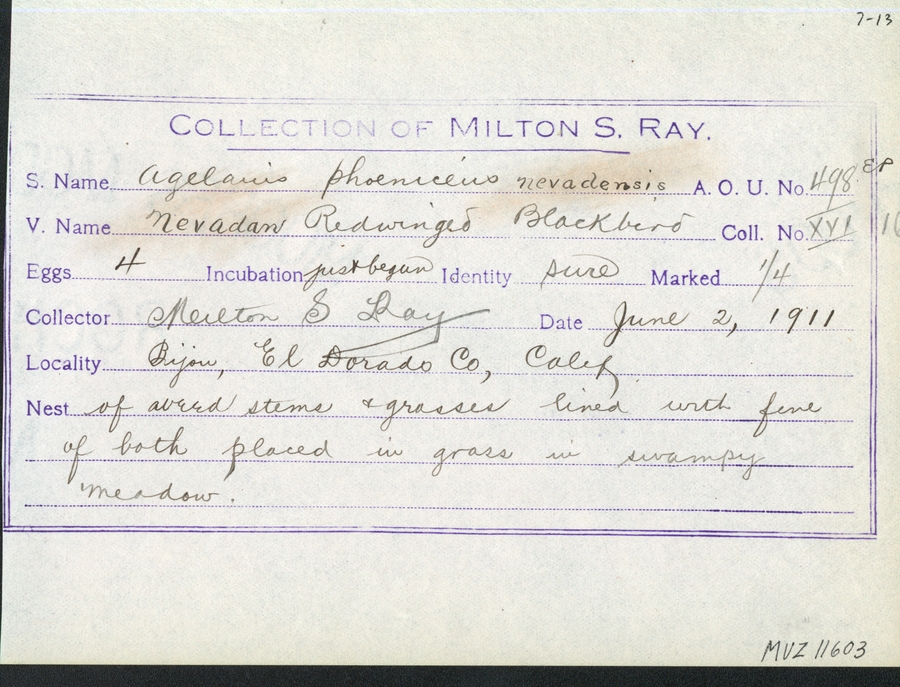 7-13
COLLECTION OF MILTON S. RAY.
S. Name Agelaius phoeniceus nevadensis A. O. U. No. 498 EP
V. Name Nevadan Redwinged Blackbird Coll. No. XVI
Eggs 4 Incubation just began Identity sure Marked 1/4
Collector Milton S Ray Date June 2, 1911
Locality Bijou, El Dorado Co, Calif
Nest of weed stems & grasses lined with fine
of both placed in grass in swampy
meadow.
MVZ 11603